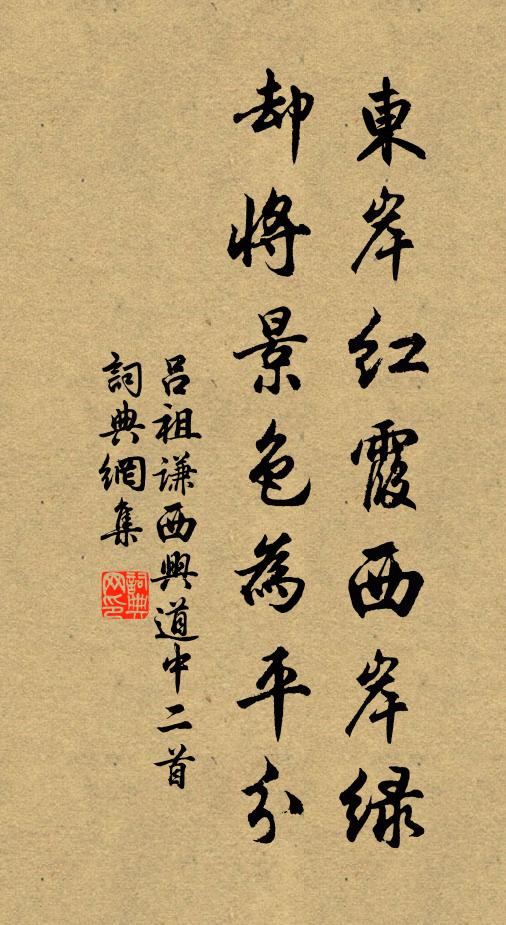 東岸紅霞西岸緑
却將景色為平分
呂祖謙西興道中二首
詞典網集
詞典網印